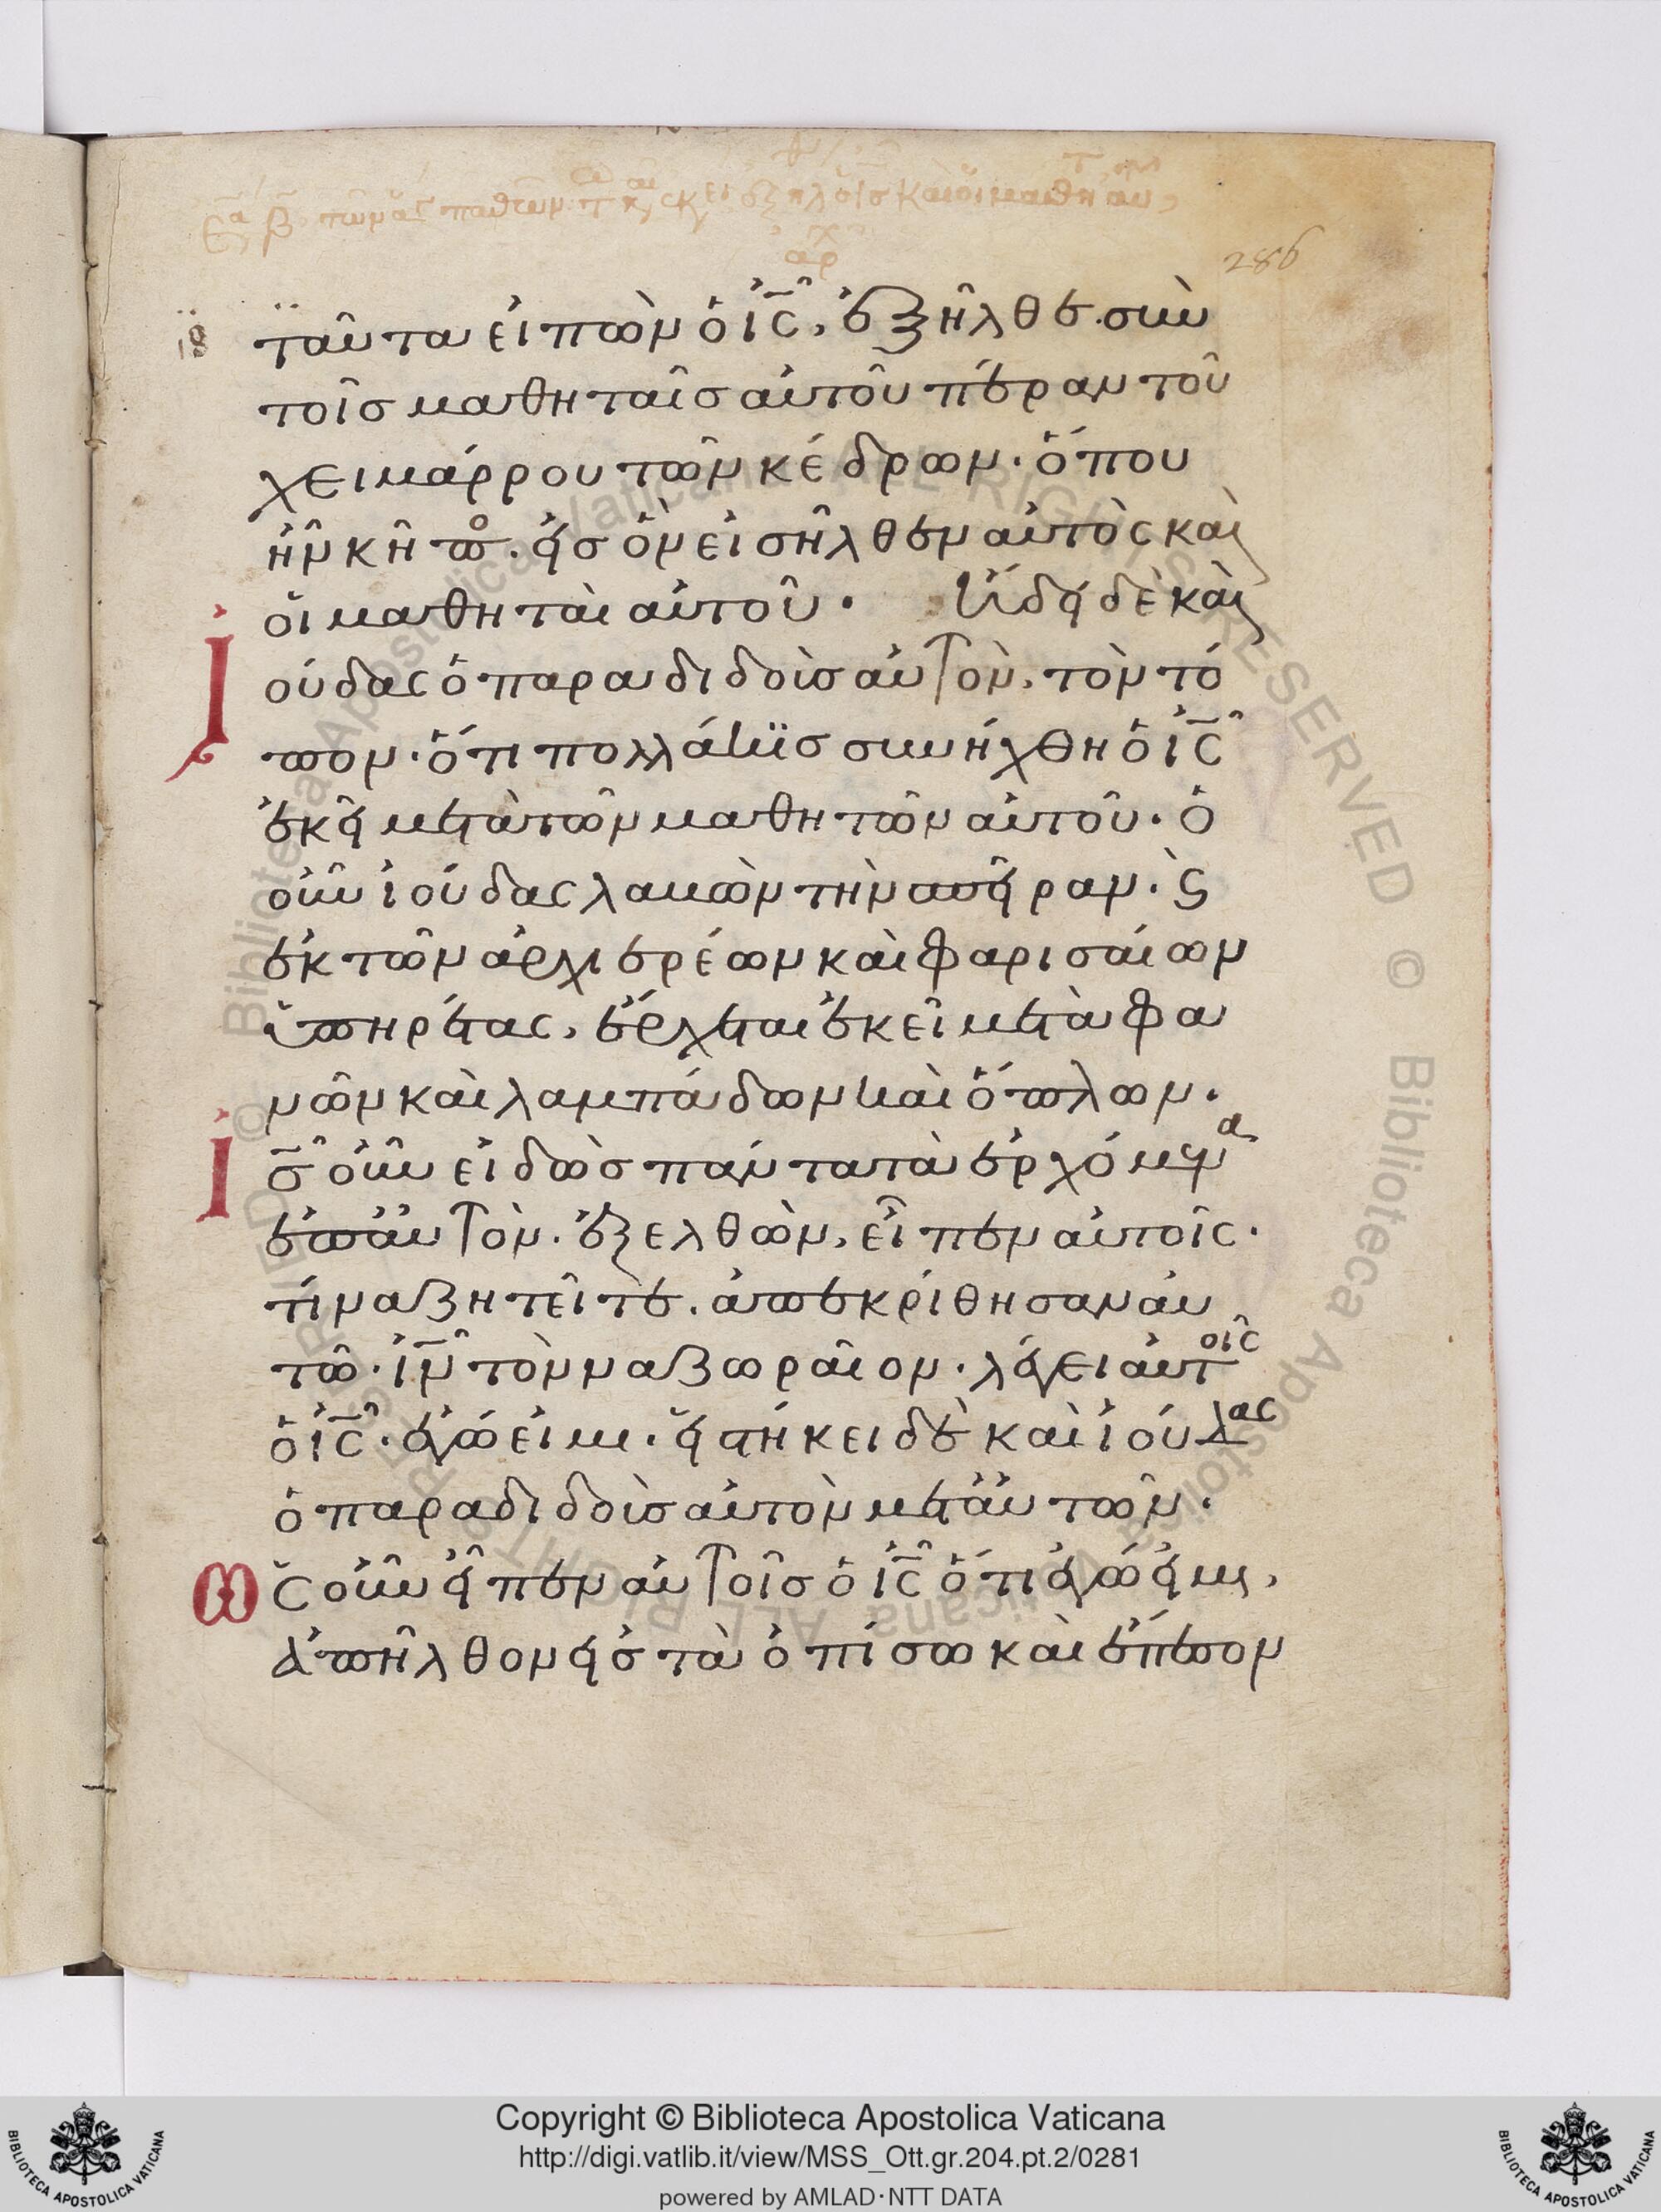 286
ταῦτα εἰπὼν ὁ ις, ἐξῆλθε συν
τοῖς μαθηταῖς αὐτοῦ πέραν τοῦ
χειμάρρου τῶν κέδρων· ὅπου
ἦν κῆπος· εἰς ὃν εἰσῆλθεν αὐτὸς καὶ
οἱ μαθηταὶ αὐτοῦ· ἤδει δὲ καὶ
Ἰούδας ὁ παραδιδοὺς αὐτὸν, τὸν τό
πον· ὅτι πολλάκϊς συνήχθη ὁ ις
ἐκεῖ μετὰ τῶν μαθητῶν αὐτοῦ· ὁ
οὖν ἰούδας λαβὼν τὴν σπεῖραν· ϗ
ἐκ τῶν ἀρχιερέων καὶ φαρισαίων
ὑπηρέτας, ἔρχεται ἐκεῖ μετὰ φα
νῶν καὶ λαμπάδων καὶ ὅπλων·
Ἰς οὖν εἰδὼς πάντα τὰ ἐρχόμενα
ἐπ' αὐτὸν· ἐξελθὼν, εἶπεν αὐτοῖς·
τίνα ζητεῖτε· ἀπεκρίθησαν αὐ
τῶ· ιν τὸν ναζωραῖον· λέγει αὐτοῖς
ὁ ις· ἐγώ εἰμι· εἱστήκει δὲ καὶ ἰούδας
ὁ παραδιδοὺς αὐτὸν μετ' αὐτῶν·
Ὡς οὖν εἶπεν αὐτοῖς ὁ ις ὅτι ἐγώ εἰμι,
ἀπῆλθον εἰς τὰ ὀπίσω καὶ ἔπεσον
© Biblioteca Apostolica Vaticana ALL RIGHTS RESERVED
Copyright © Biblioteca Apostolica Vaticana
http://digi.vatlib.it/view/MSS_Ott.gr.204.pt.2/0281
powered by AMLAD·NTT DATA
BIBLIOTECA APOSTOLICA VATICANA
BIBLIOTECA APOSTOLICA VATICANA